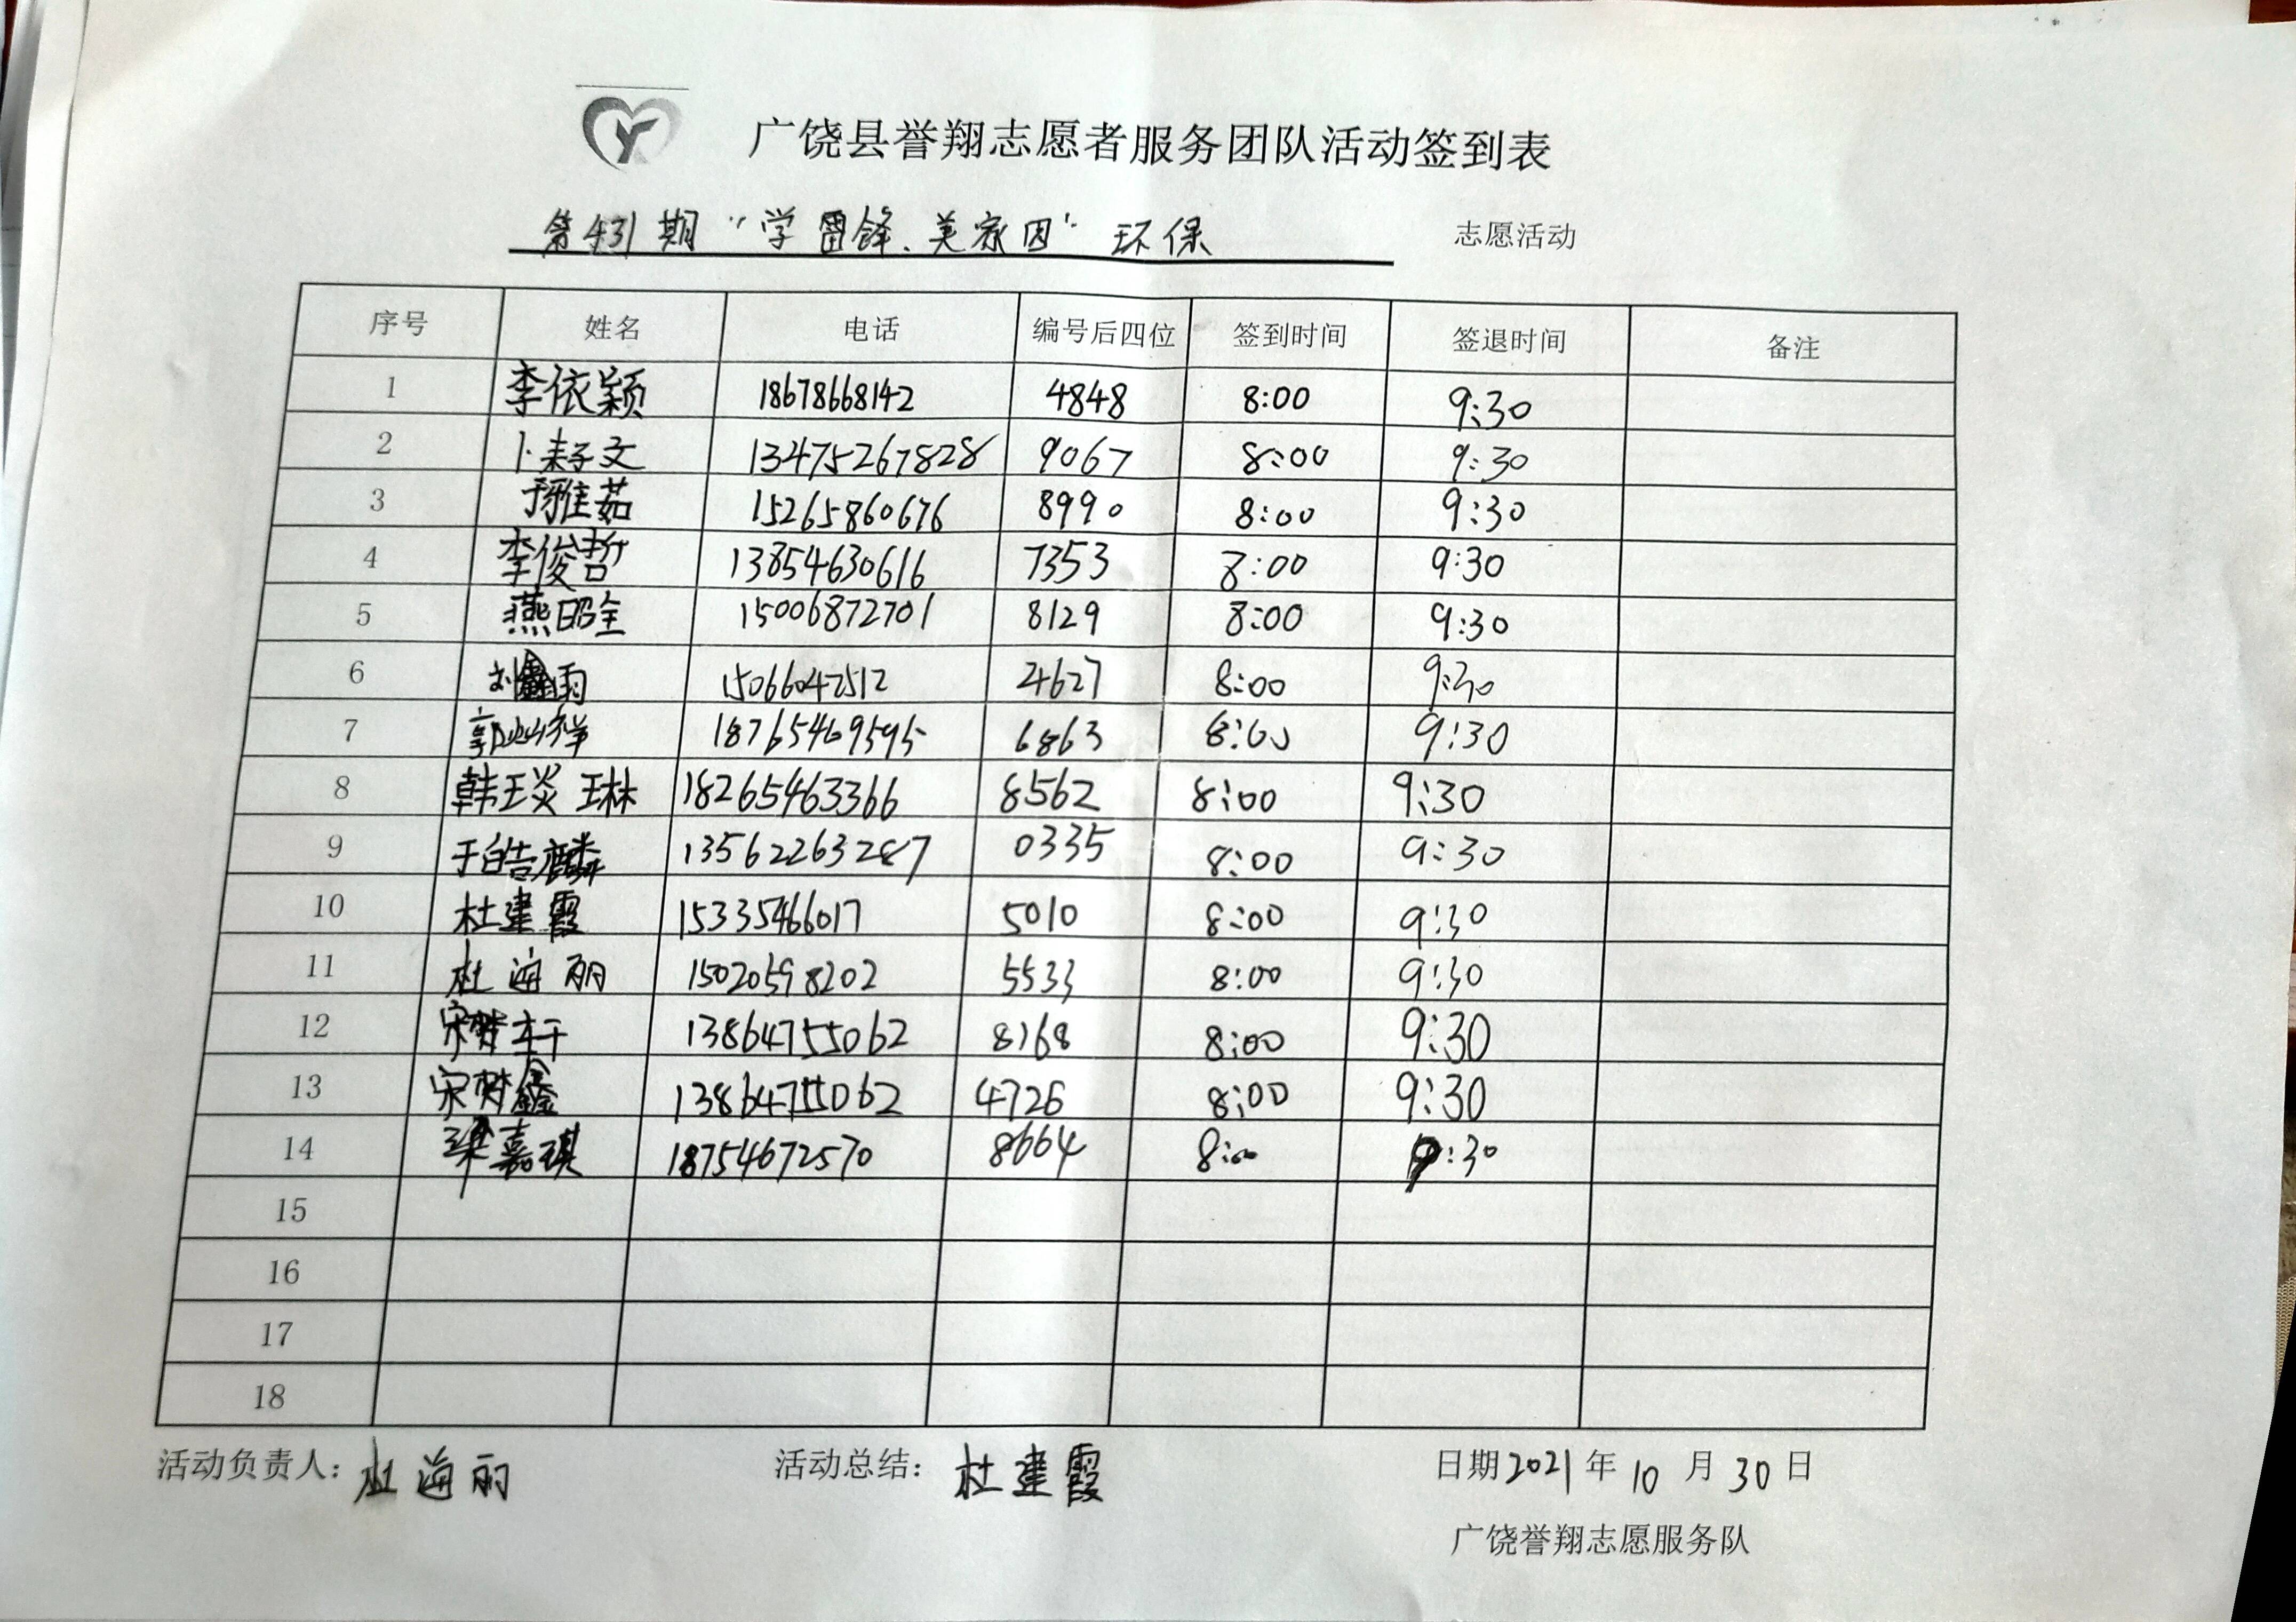 广饶县誉翔志愿者服务团队活动签到表
第431期 "学雷锋、美家园" 环保 志愿活动
序号 姓名 电话 编号后四位 签到时间 签退时间 备注
1 李依颖 18678668142 4848 8:00 9:30
2 卜耔文 13475267828 9067 8:00 9:30
3 于雅茹 15265860676 8990 8:00 9:30
4 李俊哲 13854630616 7353 8:00 9:30
5 燕昭全 15006872701 8129 8:00 9:30
6 刘鑫雨 15066047512 4627 8:00 9:30
7 郭灿祥 18765469595 6863 8:00 9:30
8 韩琰琳 18265463366 8562 8:00 9:30
9 于皓麟 13562263287 0335 8:00 9:30
10 杜建霞 15335466017 5010 8:00 9:30
11 杜海丽 15020598202 5533 8:00 9:30
12 宋梦轩 13864755062 8168 8:00 9:30
13 宋梦鑫 13864755062 4726 8:00 9:30
14 梁嘉琪 18754672570 8664 8:00 9:30
15
16
17
18
活动负责人：杜海丽 活动总结：杜建霞 日期2021年10月30日
广饶誉翔志愿服务队